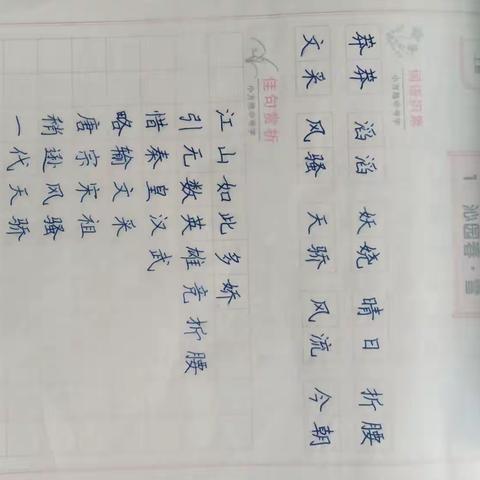 1 沁园春·雪
词语积累
莽莽 滔滔 妖娆 晴日 折腰
文采 风骚 天骄 风流 今朝
佳句赏析
江山如此多娇
引无数英雄竞折腰
惜秦皇汉武
略输文采
唐宗宋祖
稍逊风骚
一代天骄